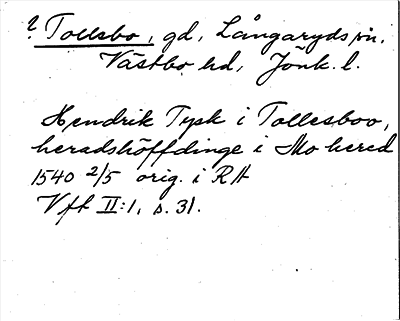 ? Tollsbo, gd, Långaryds sn,
Västbo hd, Jönk. l.
Hendrik Tysk i Tollesboo,
heradshöffdinge i Mo hered
1540 2/5 orig. i RA
Vft II:1, s. 31.